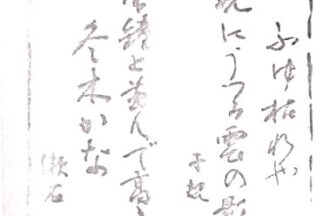 ふゆ枯れや
にうつる雲の影
子規
と並んで高き
冬木かな
漱石